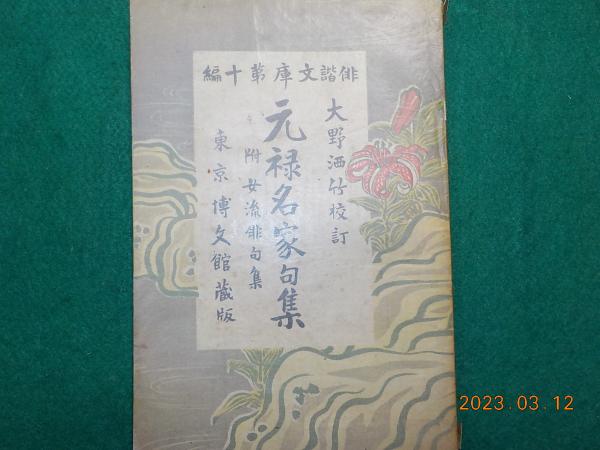 俳諧文庫第十編
大野洒竹校訂
元禄名家句集
附女流俳句集
東京博文館蔵版
2023.03.12